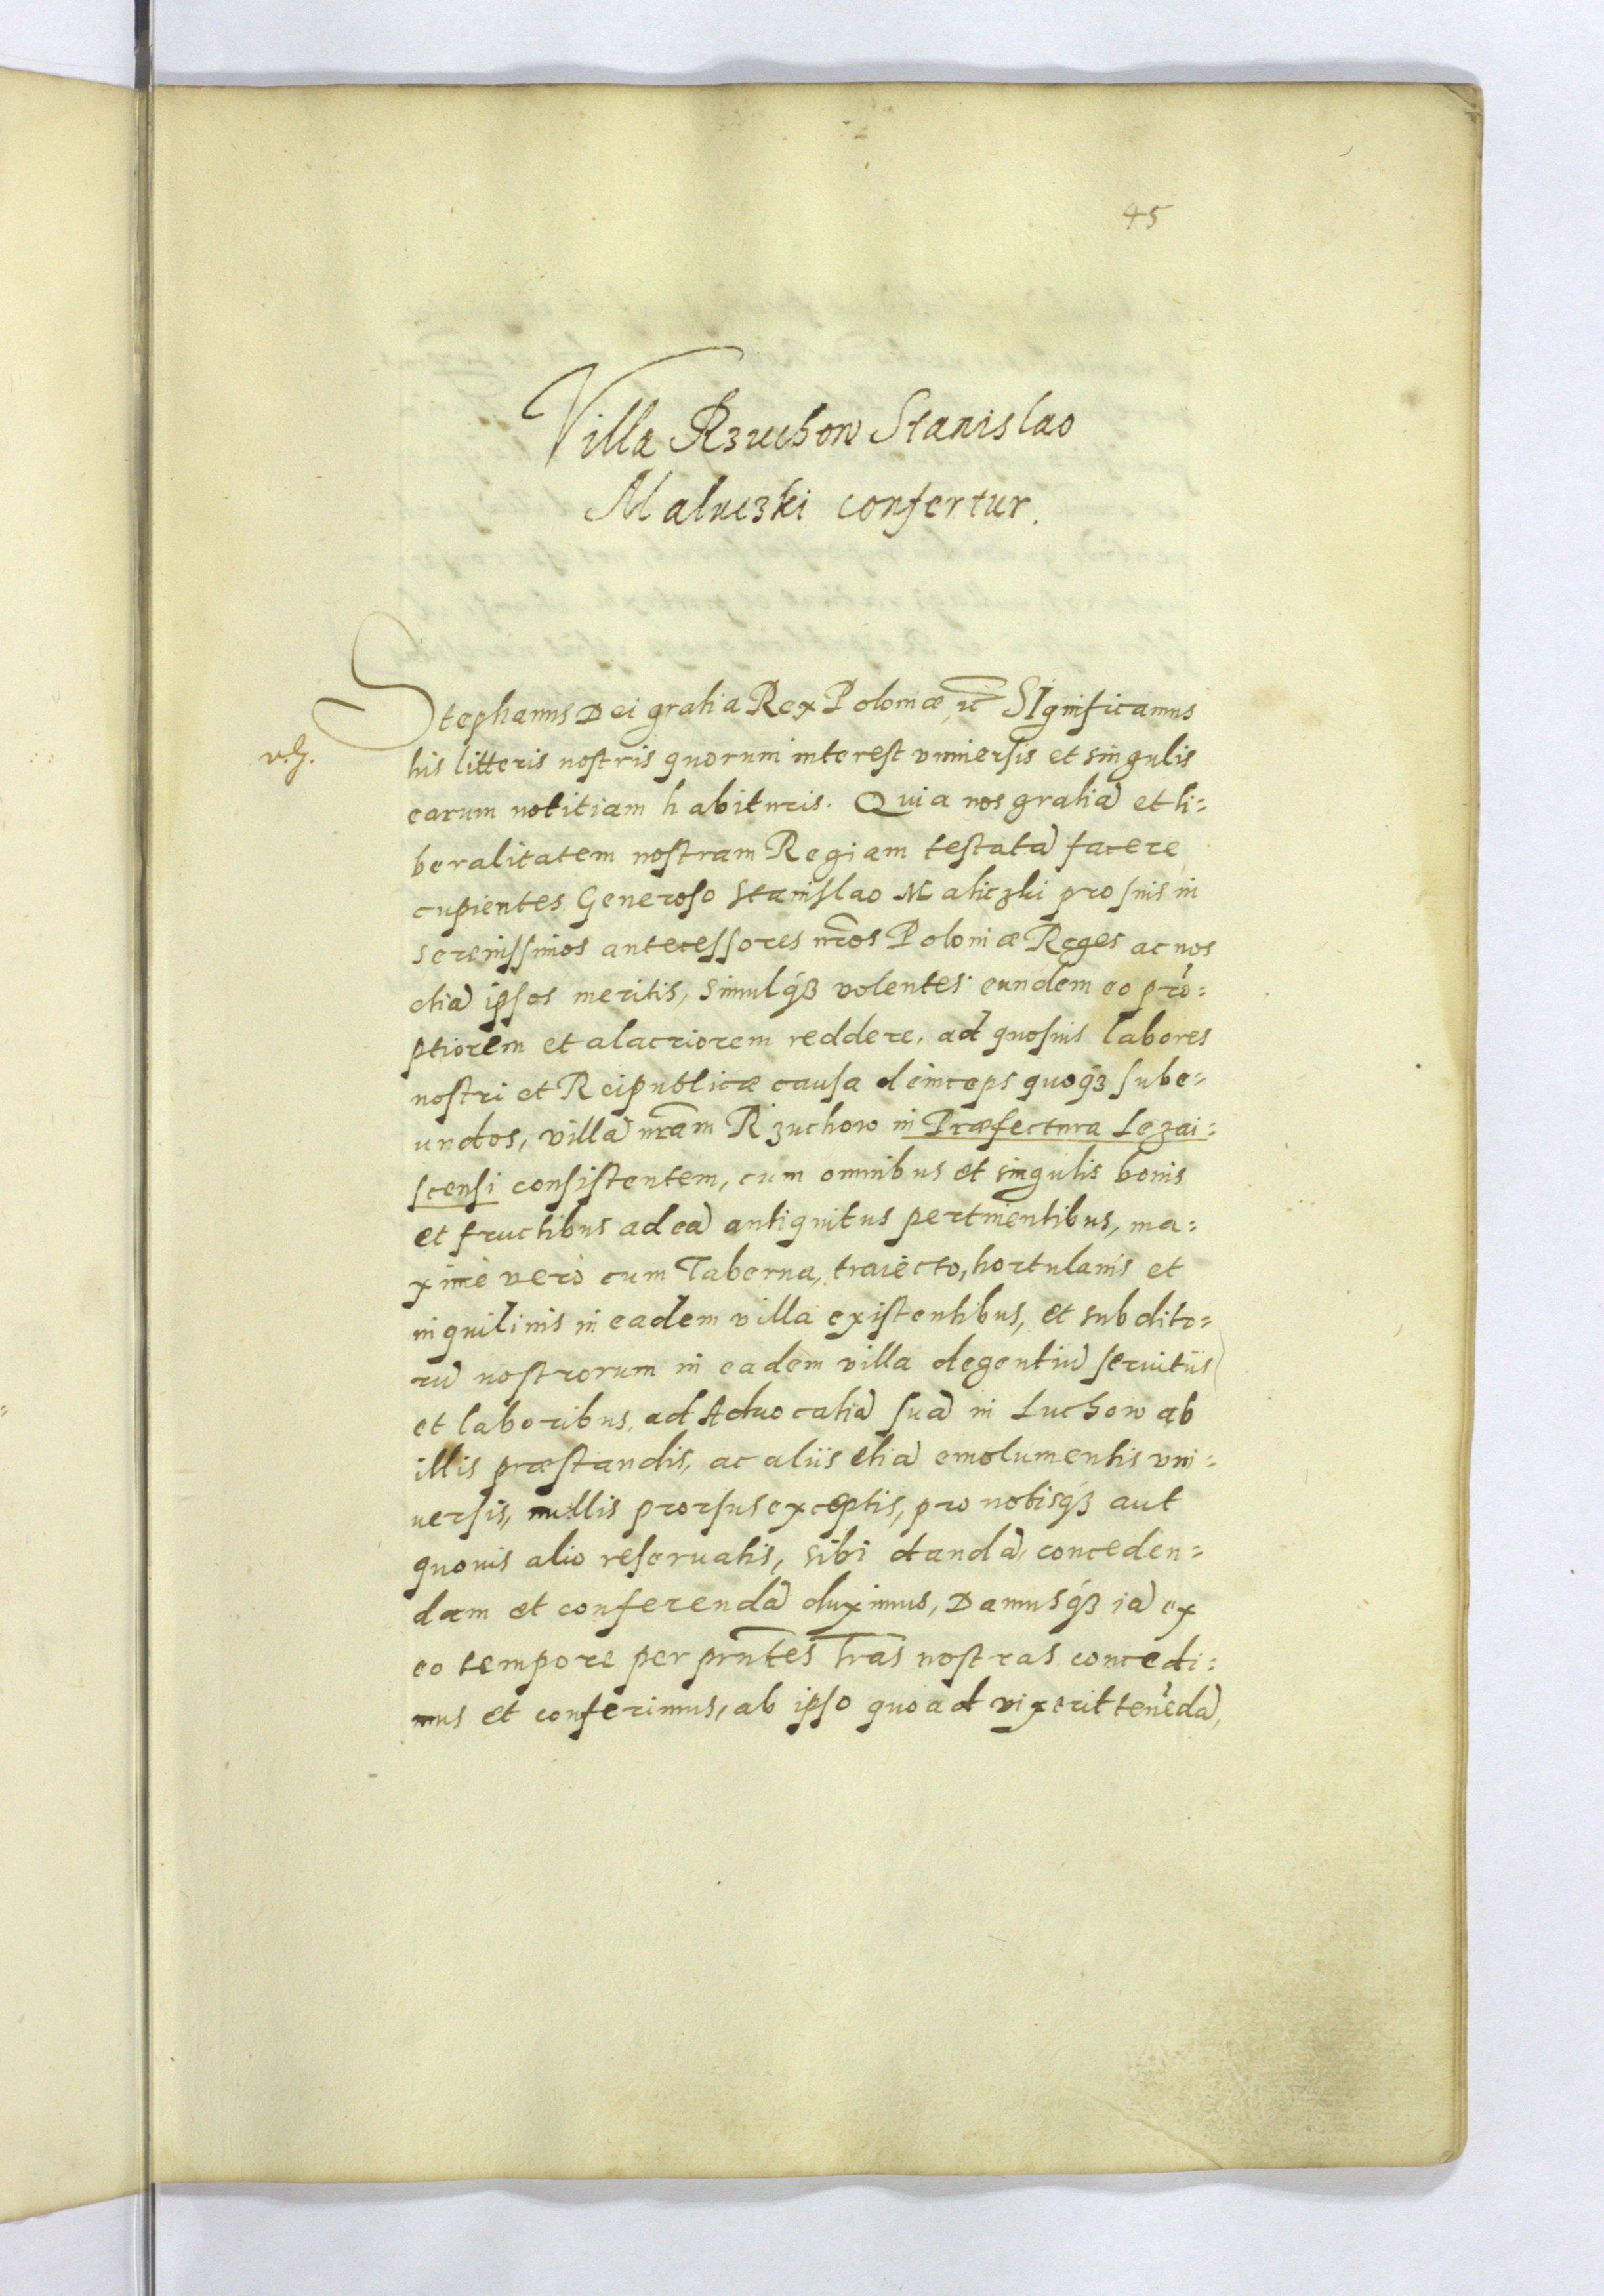 45
Villa Rzuchow Stanislao
Maluczki confertur.
Stephanus Dei gratia Rex Poloniæ etc̃ SIgnificamus
his litteris nostris quorum interest vniuersis et singulis
earum notitiam habituris. Quia nos gratiã et li=
beralitatem nostram Regiam testatã facere
cupientes Generoso Stanislao Maliczki pro suis in
serenissimos antecessores nr̃os Poloniæ Reges ac nos
etiã ipsos meritis, simulqȝ volentes eundem eo prõ=
ptiorem et alacriorem reddere, ad quosuis labores
nostri et Reipublicæ causa deinceps quoqȝ sube=
undos, villã nr̃am Rzuchow in Præfectura Lezai=
scensi consistentem, cum omnibus et singulis bonis
et fructibus ad eã antiquitus pertinentibus, ma=
ximè verò cum Taberna, traiecto, hortulanis et
inquilinis in eadem villa existentibus, et subdito=
rũ nostrorum in eadem villa degentiũ seruitiis
et laboribus, ad Aduocatiã suã in Luchow ab
illis præstandis, ac aliis etiã emolumentis vni=
uersis, nullis prorsus exceptis, pro nobisqȝ aut
quouis alio reseruatis, sibi dandã, conceden=
dam et conferendã duximus, Damusqȝ iã ex
eo tempore per prñtes lr̃as nostras concedi=
mus et conferimus, ab ipso quoad vixerit tenẽdã,